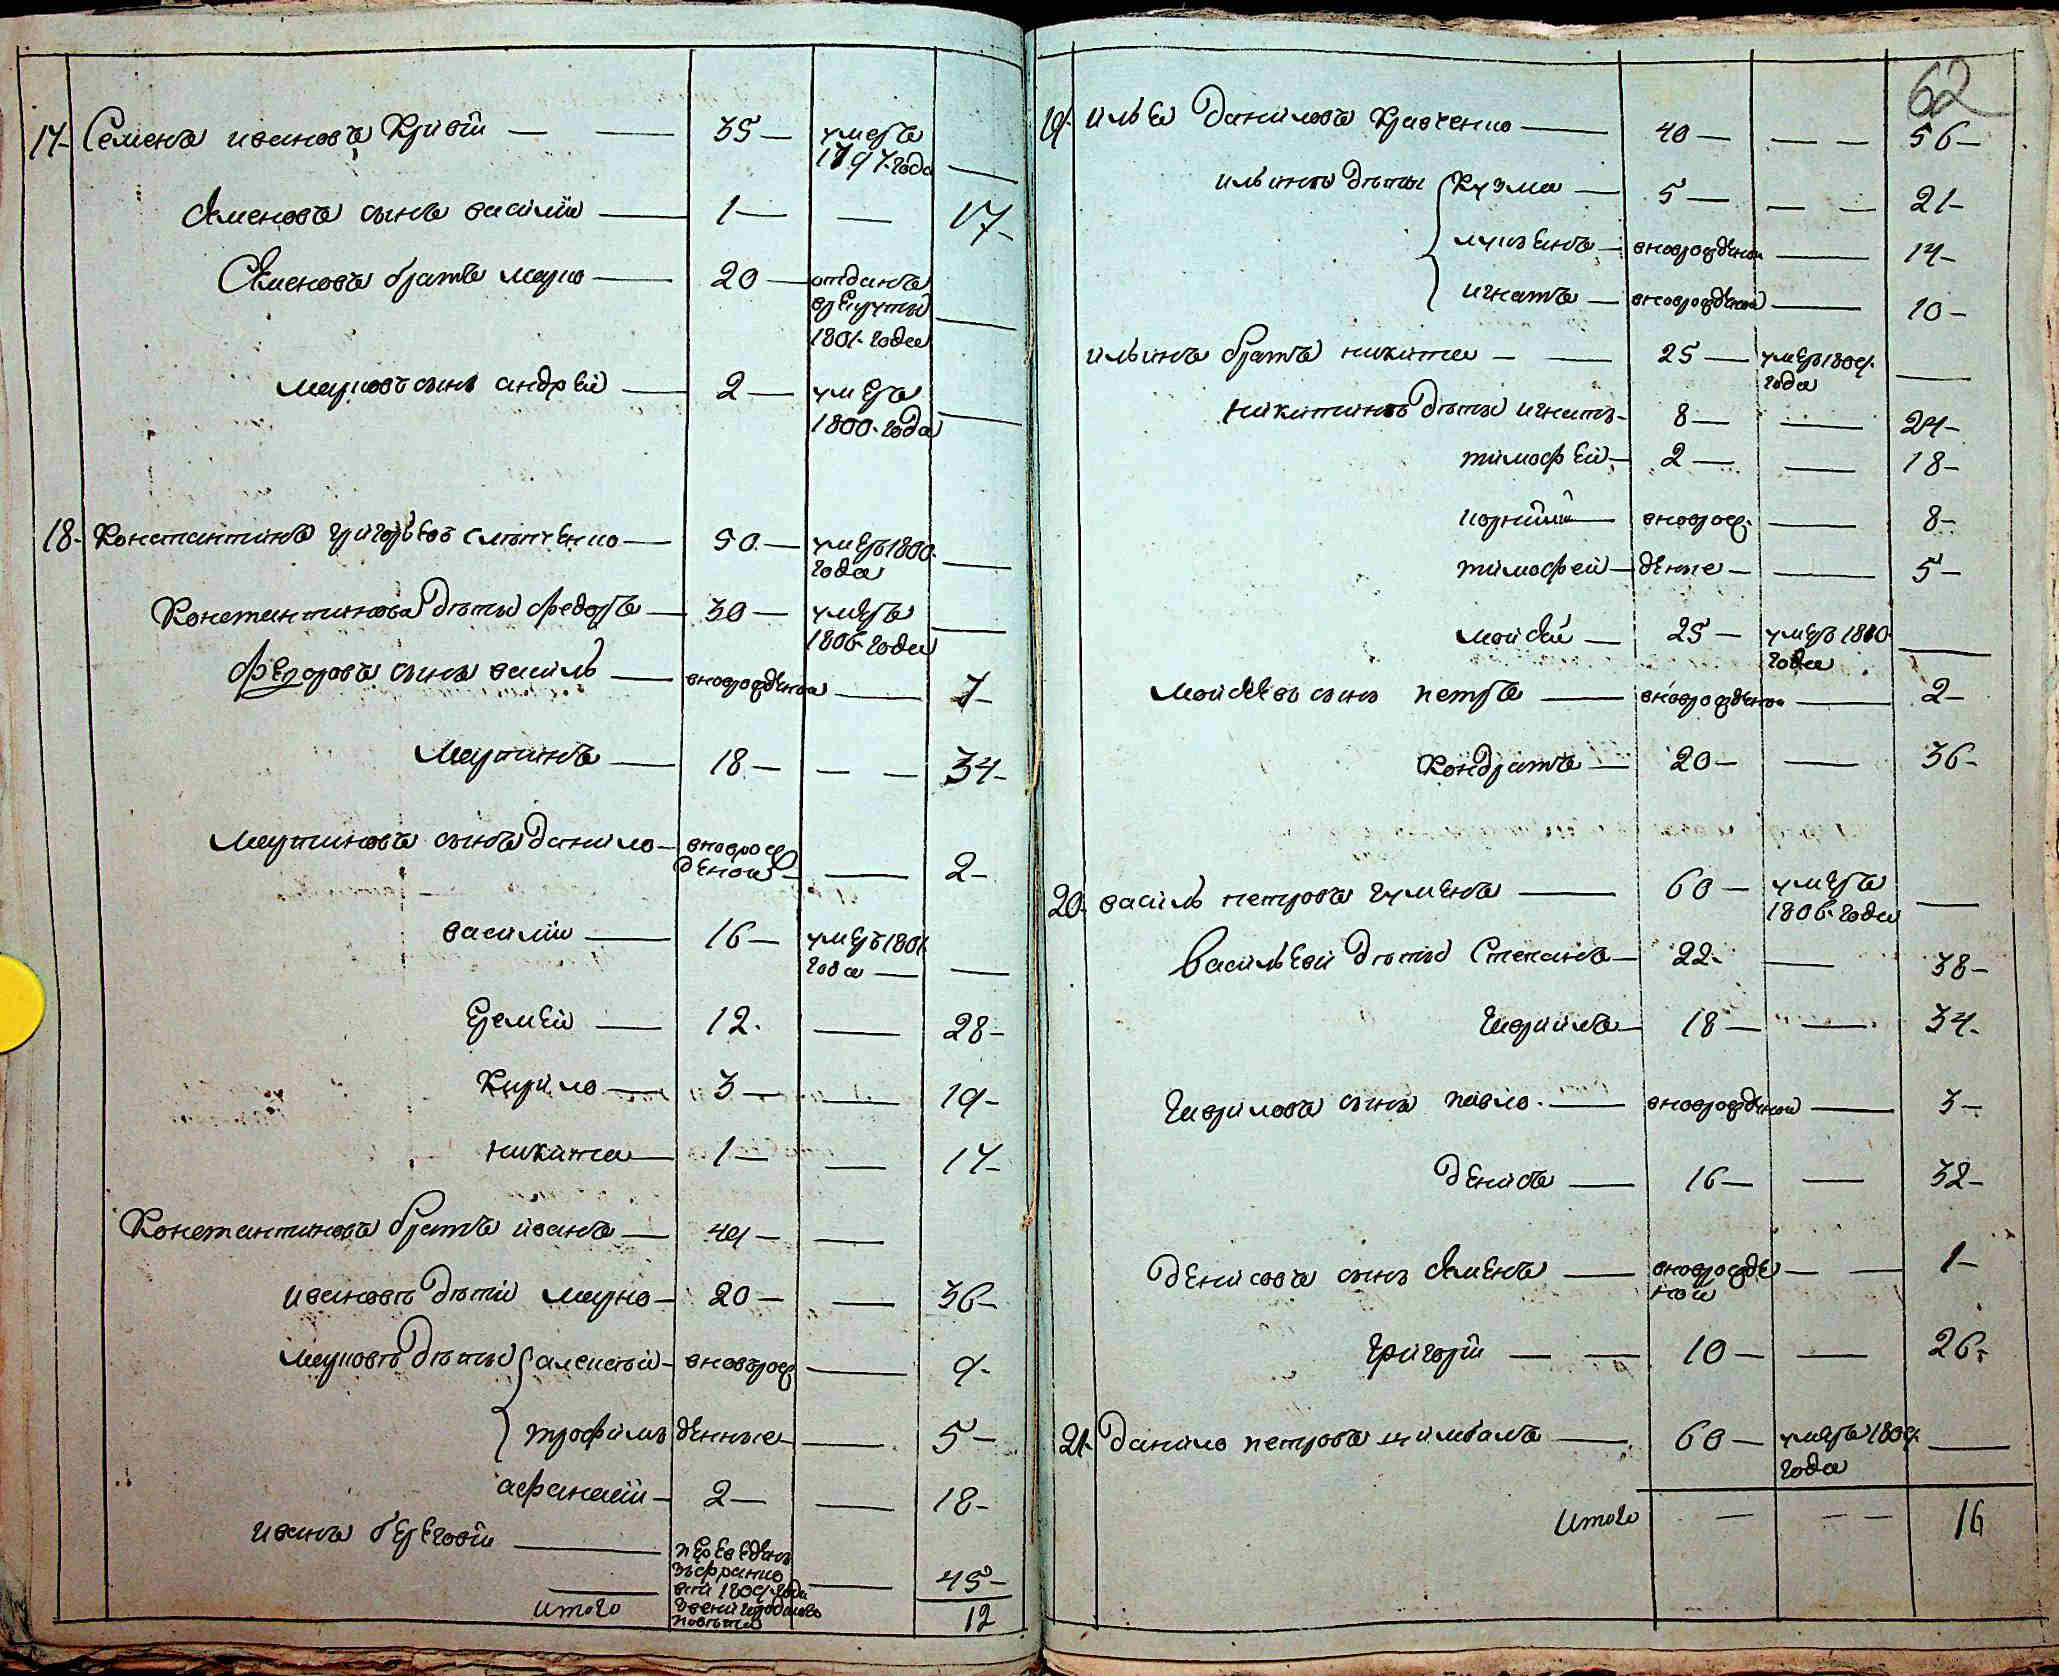 17. Семенъ ивановъ Кривій — 35 — умеръ 1797. года —
Семеновъ сынъ василій — 1 — — 17 —
Семеновъ братъ марко — 20 — отданъ врекруты 1801. года —
марковъ сынъ андрей — 2 — умеръ 1800. года —
18. Константинъ григорьевъ слѣпченко — 50 — умеръ 1800. года —
Константиновы дѣты федоръ — 30 — умеръ 1806. года —
федоровъ сынъ василь — вноврожденой — 7 —
Мартинъ — 18 — — — 34 —
Мартиновъ сынъ данило — вноврож деной — — 2 —
василій — 16 — умеръ 1801. года — —
Еремей — 12. — 28 —
Кирило — 3 — — 19 —
никита — 1 — — 17 —
Константиновъ братъ иванъ — 44 — —
ивановы дѣти марко — 20 — — 36 —
марковы дѣты алексій — вноврож — 9 —
трофимъ денные — — 5 —
афанасій — 2 — — 18 —
иванъ береговій — переведенъ 1809 года звенигородского повѣта — 45 —
итого 12
62
19. илья даниловъ Кравченко — 40 — — — 56 —
ильины дѣты Кузма — 5 — — — 21 —
лукьянъ — вноврожденой — 14 —
игнатъ — вноврожденой — 10 —
ильинъ братъ никита — — 25 — умеръ 1809. года —
никитины дѣты игнатъ — 8 — — 24 —
тимофей — 2 — — 18 —
корнилій — вноврож. — 8 —
тимофей — деные — — 5 —
мойсей — 25 — умеръ 1810 года —
мойсеевъ сынъ петръ — вноврожденой — 2 —
Кондратъ — 20 — — 36 —
20. василь петровъ гуменъ — 60 — умеръ 1806. года —
васильевы дѣты Степанъ — 22. — 38 —
гаврилъ — 18 — — 34.
гавриловъ сынъ павло. — вноврожденой — 3 —
денисъ — 16 — — 32 —
денисовъ сынъ семенъ — вноврожде ной — — 1 —
григорій — — 10 — — 26.
21. данило петровъ цимбалъ — 60 — умеръ 1809. года —
итого — — — 16